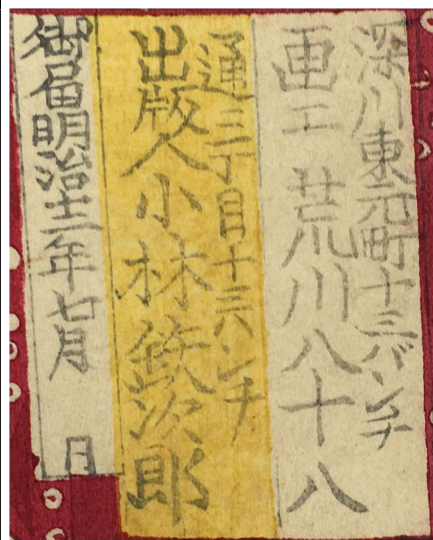 深川東元町十三バンチ
画工 荒川八十八
通三丁目十三バンチ
出版人 小林鉄次郎
御届明治十二年七月 日